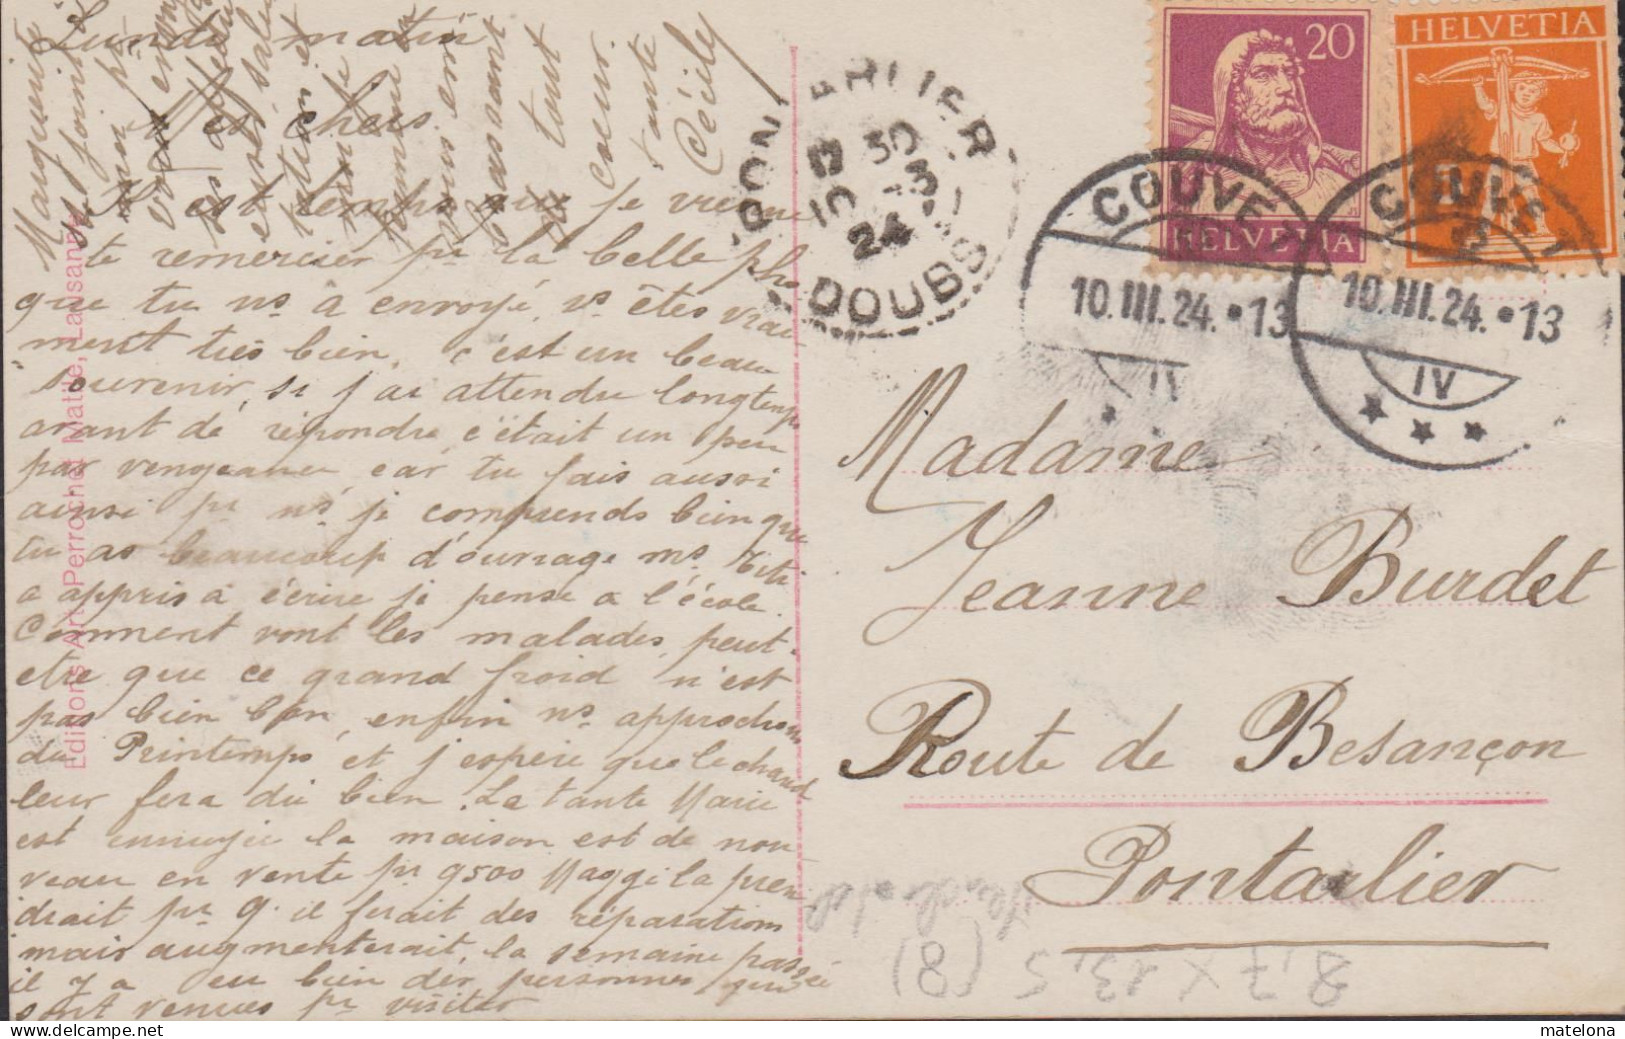 Lundi matin
Mes chers
Il est temps que je vienne
te remercier pr la belle pho
que tu ns a envoyé, vs êtes vrai
ment très bien, c'est un beau
souvenir, si j'ai attendu longtemps
avant de répondre c'était un peu
par vengeance car tu fais aussi
ainsi pr ns, je comprends bien que
tu as beaucoup d'ouvrage ms Titi
a appris à écrire je pense a l'école.
Comment vont les malades, peut-
etre que ce grand froid n'est
pas bien bon, enfin ns approchons
du Printemps et j'espère que la chand
leur fera du bien. La tante Marie
est ennuyée la maison est de nou
veau en vente pr 9500 Maggi la pren
drait pr 9. il ferait des réparations
mais augmenterait, la semaine passée
il y a eu bien des personnes qui
sont venues pr visiter
Marguerite
embrassant
tout
cœur
tante
Cécile
Editions Art. Perrochet-Matile, Lausanne
PONTARLIER
30
-3
24
DOUBS
20
HELVETIA
HELVETIA
COUVET
10.III.24.•13
IV
COUVET
10.III.24.•13
IV
Madame
Jeanne Burdet
Route de Besançon
Pontarlier
8,7 x 13,5 (8)
matelona